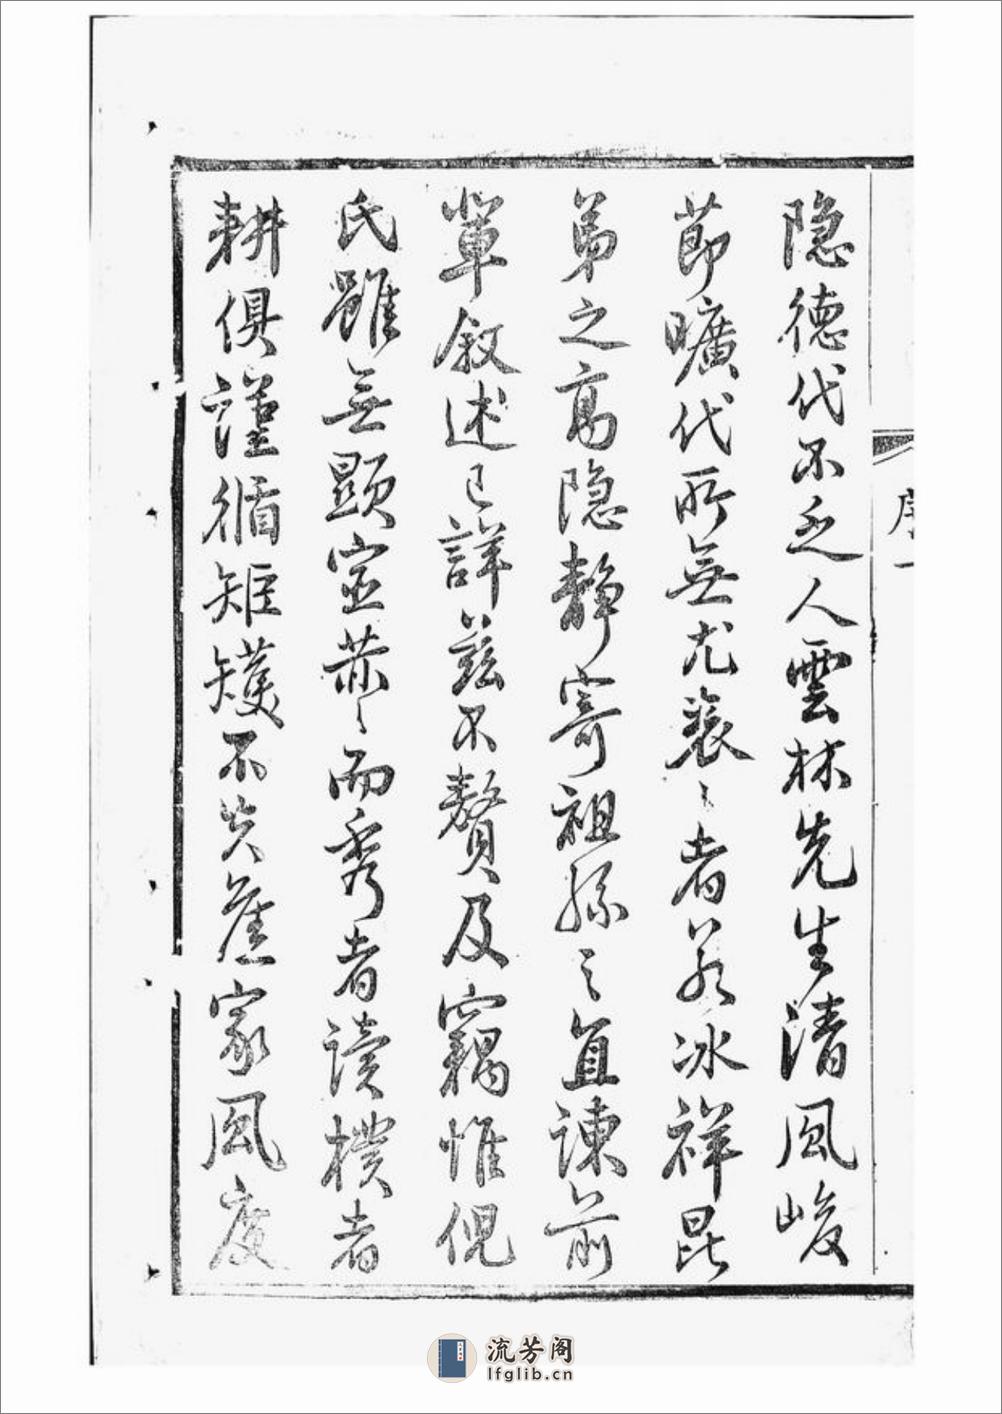 隐德代不乏人雲林先生清風峻
節曠代所無尤衮〻者若冰祥昆
弟之高隐静寄祖孫之直諫前
輩叙述已詳兹不贅及竊惟倪
氏雖無顯宦赫〻而秀者讀樸者
耕俱謹循矩矱不失舊家風度
序一
流芳阁
lfglib.cn